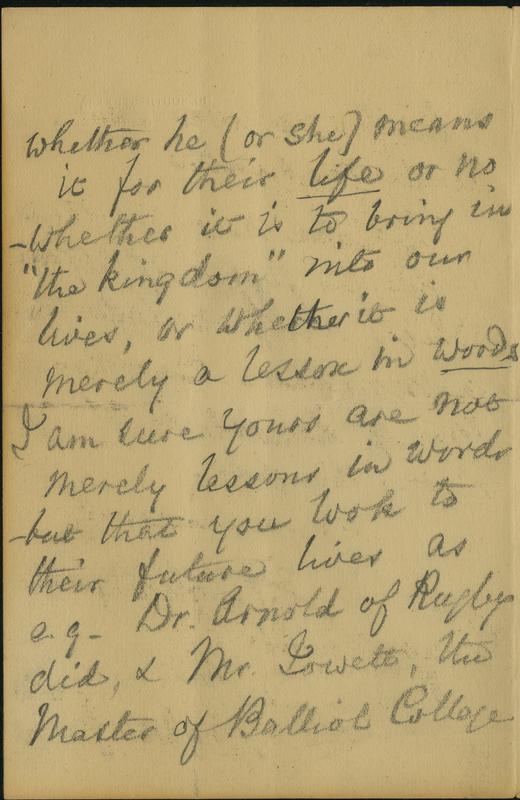 whether he (or she) means
it for their life or no
- whether it is to bring in
"the kingdom" into our
lives, or whether it is
merely a lesson in words
I am sure yours are not
merely lessons in words
- but that you look to
their future lives as
e.g - Dr. Arnold of Rugby
did, & Mr. Jowett, the
Master of Balliol College